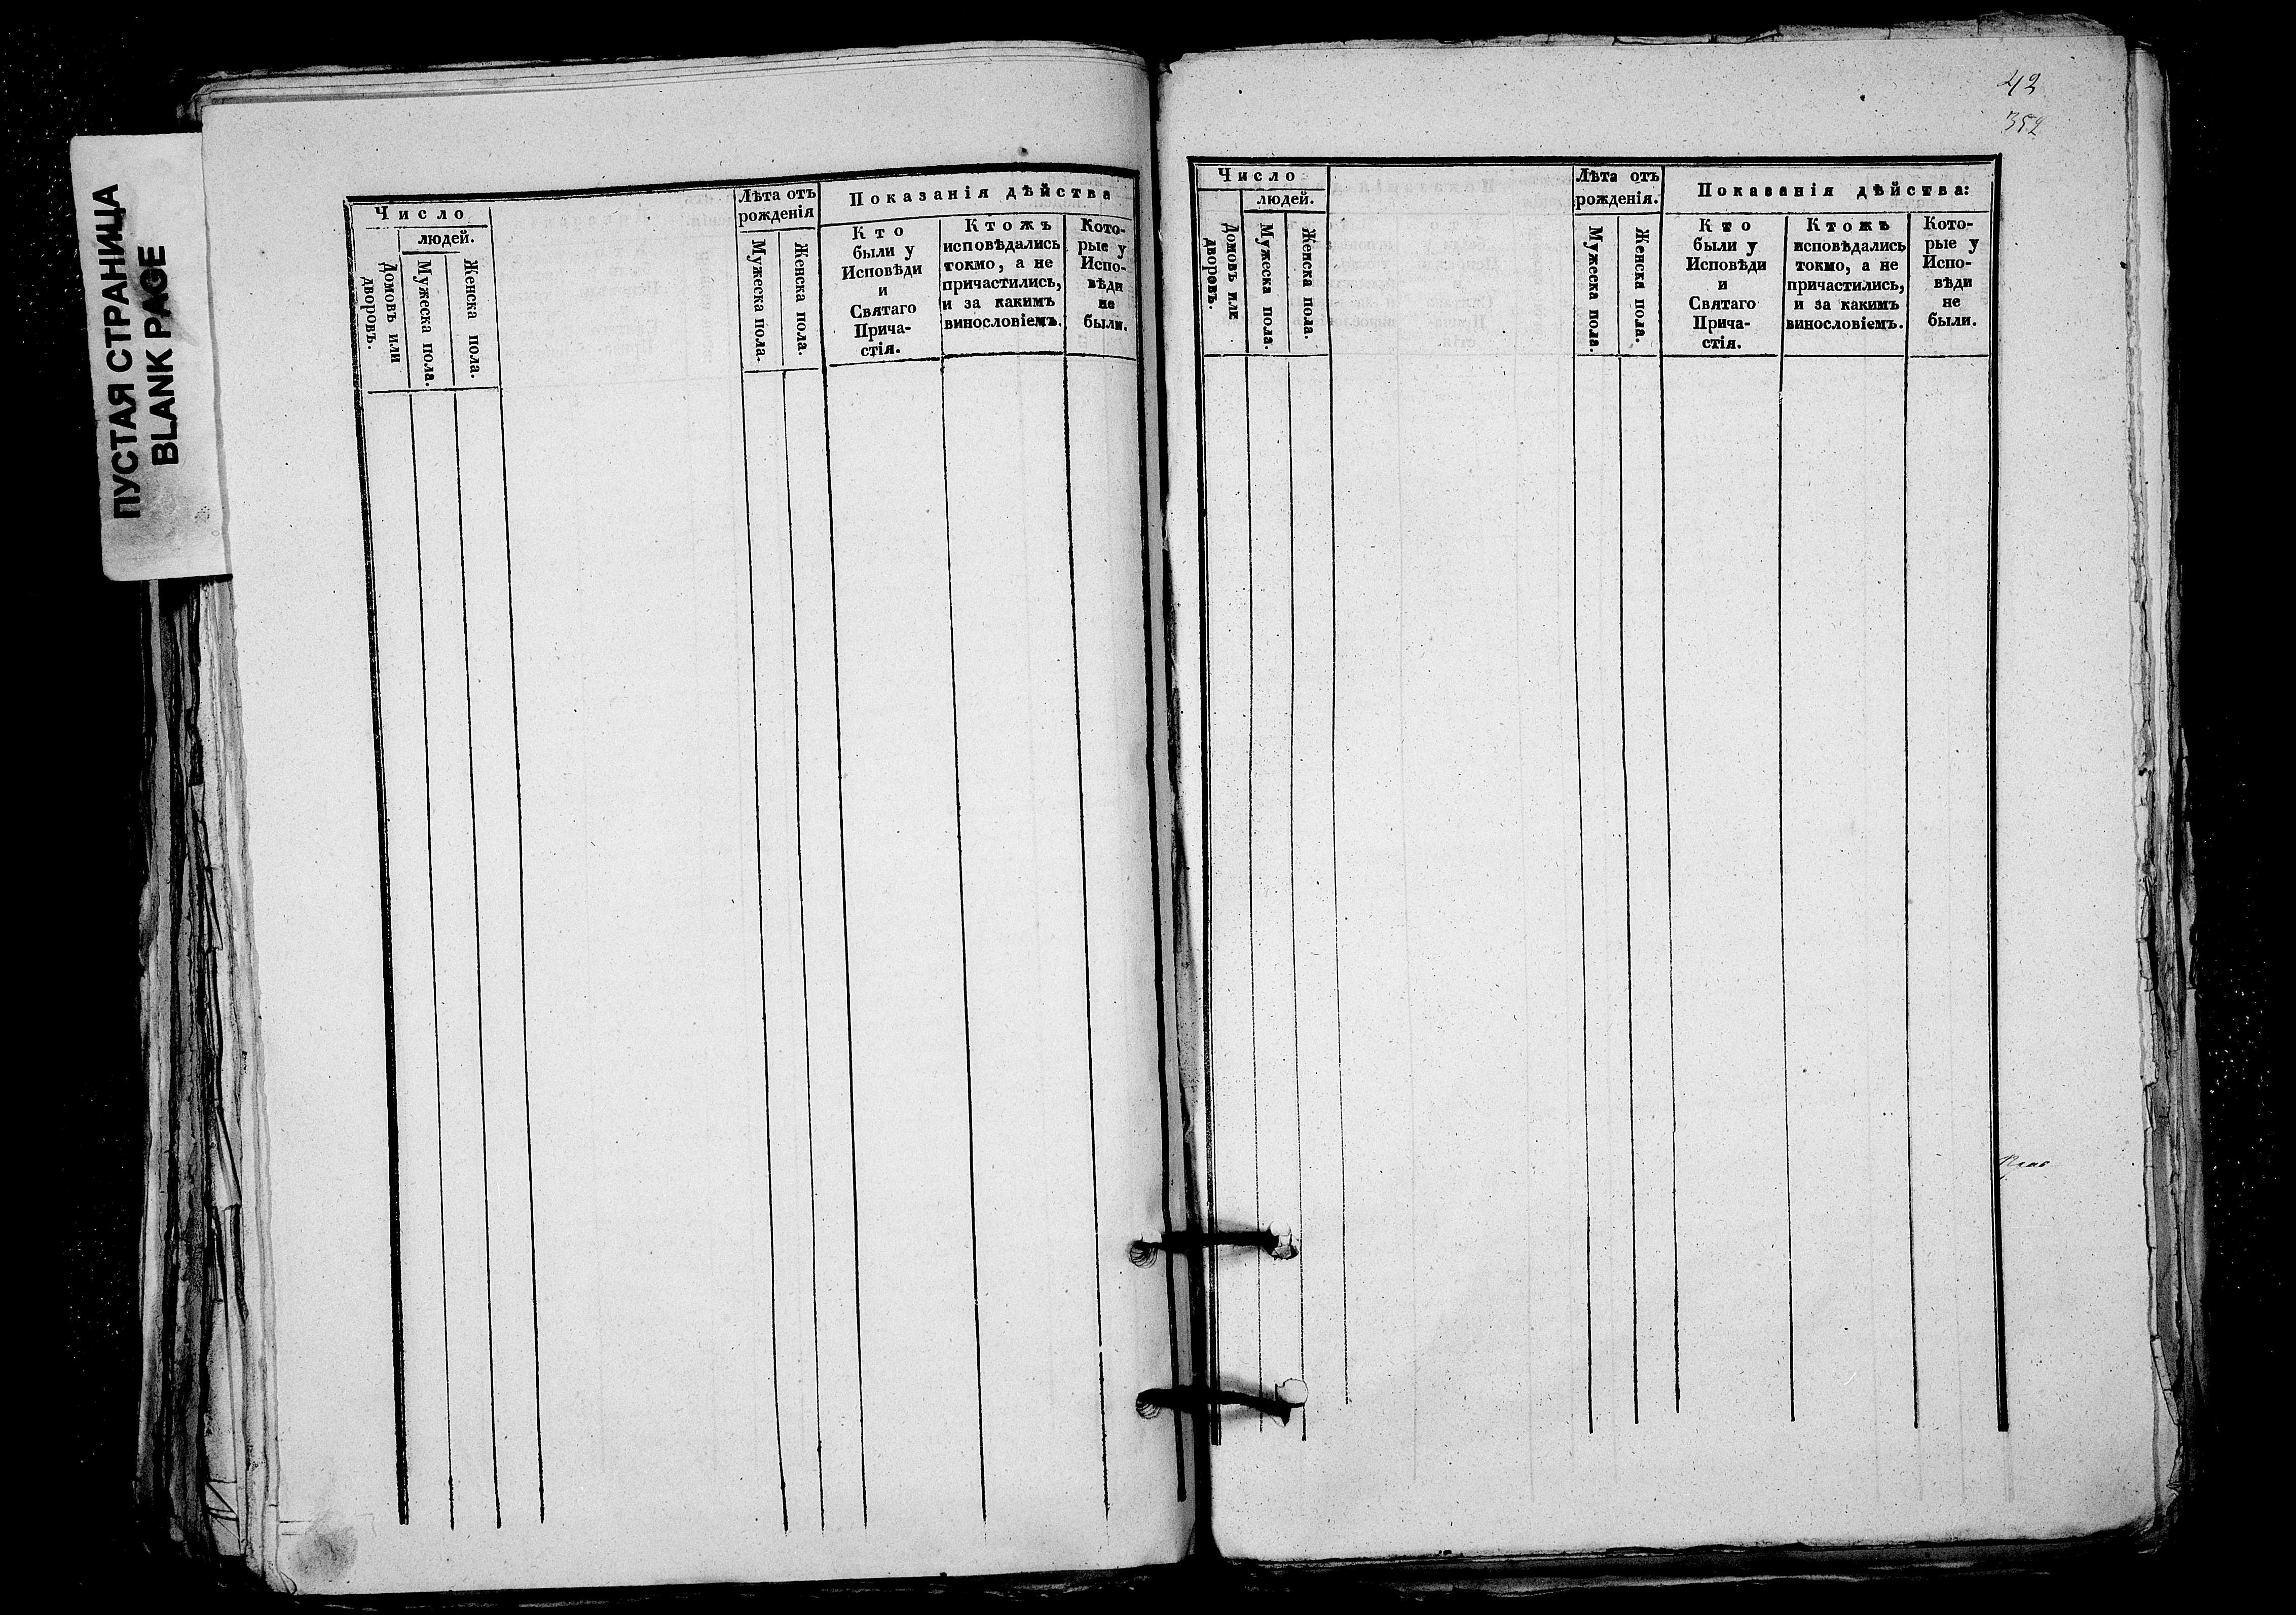 ПУСТАЯ СТРАНИЦА
BLANK PAGE
Число
людей.
Домовъ или
дворовъ.
Мужеска пола.
Женска пола.
Лѣта отъ
рожденія
Мужеска пола.
Женска пола.
Показанія дѣйства
Кто
были у
Исповѣди
и
Святаго
Прича-
стія.
Ктожъ
исповѣдались
токмо, а не
причастились,
и за какимъ
винословіемъ.
Кото-
рые у
Испо-
вѣди
не
были.
42
352
Число
людей.
Домовъ или
дворовъ.
Мужеска пола.
Женска пола.
Лѣта отъ
рожденія.
Мужеска пола.
Женска пола.
Показанія дѣйства:
Кто
были у
Исповѣди
и
Святаго
Прича-
стія.
Ктожъ
исповѣдались
токмо, а не
причастились,
и за какимъ
винословіемъ.
Кото-
рые у
Испо-
вѣди
не
были.